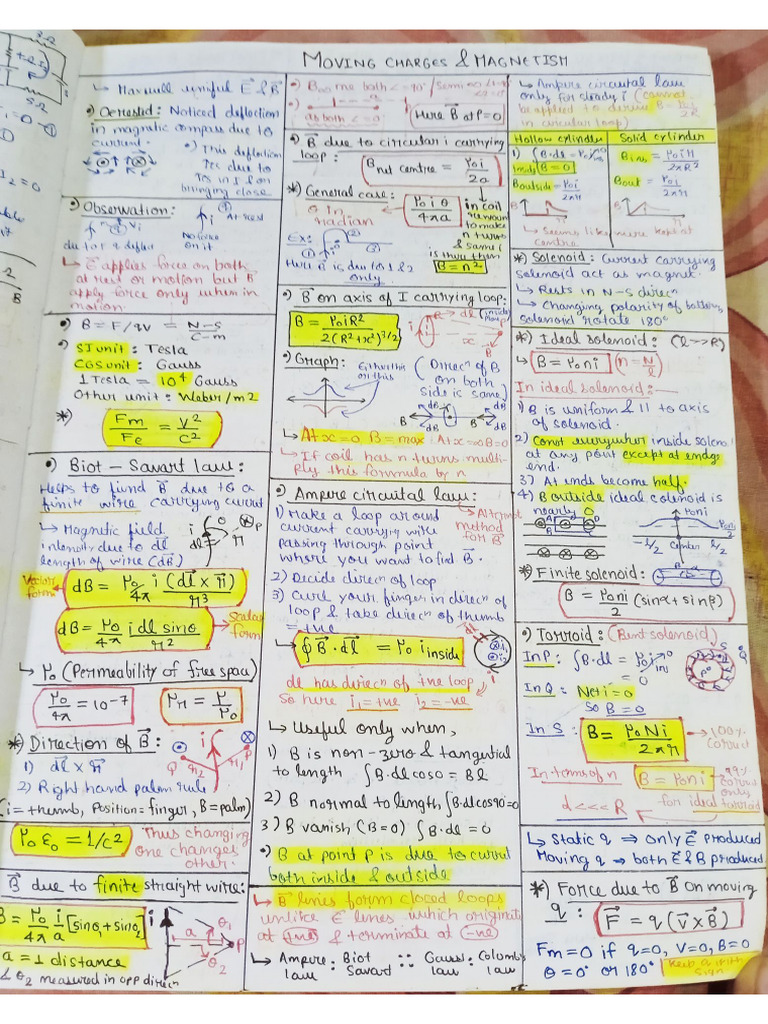 MOVING CHARGES & MAGNETISM
↳ Maxwall unified E⃗ & B⃗
•) Oersted: Noticed deflection
in magnetic compass due to
current.
•) This deflection
↑ec due to
bringing close
•) Observation:
i At rest
No force
on it
↳ E⃗ applies force on both
at rest or motion but B⃗
apply force only when in
motion.
•) B = F/qV = N-S/C-m
•) SI unit: Tesla
CGS unit: Gauss
1 Tesla = 10⁴ Gauss
Other unit: Weber/m2
*) Fm/Fe = V²/C²
•) Biot – Savart law:
Helps to fund B⃗ due to a
finite wire carrying current
↳ Magnetic field
intensity due to dl⃗
length of wire (dB⃗)
Vector form
dB = μ₀/4π i (dl⃗ x r⃗)/r³
dB = μ₀/4π i dl sinθ/r²
Scalar form
↳ μ₀ (Permeability of free space)
μ₀/4π = 10⁻⁷
μr = μ/μ₀
*) Direction of B⃗:
1) dl⃗ x r⃗
2) Right hand palm rule
(i = thumb, Position = finger, B = palm)
μ₀ ε₀ = 1/c²
Thus changing
one changes
other.
B⃗ due to finite straight wire:
B = μ₀/4π i/a [sinθ₁ + sinθ₂]
a = ⊥ distance
θ₂ measured in opp direcn
as both ∠ = 0
Here B⃗ at P = 0
•) B⃗ due to circular i carrying
loop:
B net centre = μ₀i/2a
*) General case:
θ in
radian
μ₀ i θ/4πa
in coil
to make
n turns
& same i
is thru then
B = n²
Ex:
Here B is due to 1 & 2
only
•) B⃗ on axis of I carrying loop:
B = μ₀iR²/2(R²+x²)^3/2
•) Graph:
(Direcn of B
on both
side is same)
↳ At x = 0 B = max. At x = ∞ B = 0
↳ If coil has n turns multi-
ply this formula by n
•) Ampere circuital law:
1) Make a loop around
current carrying wire
passing through point
where you want to find B⃗.
method
for B⃗
2) Decide direcn of loop
3) Curl your finger in direcn of
loop & take direcn of thumb
= +ve
↳ ∮B⃗·dl⃗ = μ₀ i inside
dl has direcn of +ve loop
So here i₁ = +ve i₂ = -ve
↳ Useful only when,
1) B is non-zero & tangential
to length ∫B·dl cos0 = Bl
2) B normal to length ∫B·dl cos90 = 0
3) B vanish (B=0) ∫B·dl = 0
•) B at point P is due to current
both inside & outside
↳ B⃗ lines form closed loops
unlike E lines which originate
at +ve & terminate at -ve
↳ Ampere law : Biot Savart :: Gauss law : Columbs law
↳ Ampere circuital law
only for steady i (cannot
be applied to derive B = μ₀i/2R
in circular loop)
Hollow cylinder
Solid cylinder
1) ∫B·dl = μ₀i
B = 0
B outside = μ₀i/2πr
B ins = μ₀ir/2πR²
B out = μ₀i/2πr
↳ Seems like wire kept at
centre
*) Solenoid: Current carrying
solenoid act as magnet.
↳ Rests in N-S direcn
↳ Changing polarity of battery,
solenoid rotate 180°
*) Ideal solenoid: (l >> R)
↳ B = μ₀ni
n = N/l
In ideal solenoid:-
1) B is uniform & || to axis
of solenoid.
2) Const everywhere inside solenoid
at any point except at edge
end.
3) At ends become half.
4) B outside ideal solenoid is
nearly 0
μ₀ni
μ₀ni/2
-L/2 Center L/2
*) Finite solenoid:
B = μ₀ni/2 (sinα + sinβ)
•) Torroid: (Bent solenoid)
In P: ∫B·dl = μ₀i ins
In Q: Net i = 0
So B = 0
In S: B = μ₀Ni/2πr
100%
correct
In terms of n
d <<< R
B = μ₀ni
99%
correct
only
for ideal torroid
↳ Static q ⇒ only E⃗ produced
Moving q ⇒ both E⃗ & B produced
*) Force due to B⃗ on moving
q: F⃗ = q(v⃗ x B⃗)
Fm = 0 if q=0, V=0, B=0
θ = 0° or 180°
Keep q with
sign